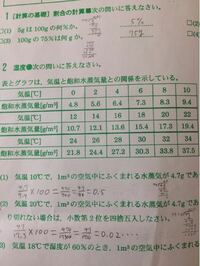 1 [計算の基礎] 割合の計算 次の問いに答えなさい。
(1) 5gは100gの何%か。
5%
(2)
(3) 100gの75%は何gか。
75g
(4)
2 湿度 次の問いに答えなさい。
表とグラフは、気温と飽和水蒸気量との関係を示している。
気温[℃] 0 2 4 6 8 10
飽和水蒸気量[g/m³] 4.8 5.6 6.4 7.3 8.3 9.4
気温[℃] 12 14 16 18 20 22
飽和水蒸気量[g/m³] 10.7 12.1 13.6 15.4 17.3 19.4
気温[℃] 24 26 28 30 32 34
飽和水蒸気量[g/m³] 21.8 24.4 27.2 30.3 33.8 37.5
(1) 気温10℃で、1m³の空気中にふくまれる水蒸気が4.7gであ
×100 = = 0.5
(2) 気温20℃で、1m³の空気中にふくまれる水蒸気が4.7g
り切れない場合は、小数第2位を四捨五入しなさい。
×100 = = 0.02
(3) 気温18℃で湿度が60%のとき、1m³の空気中にふく